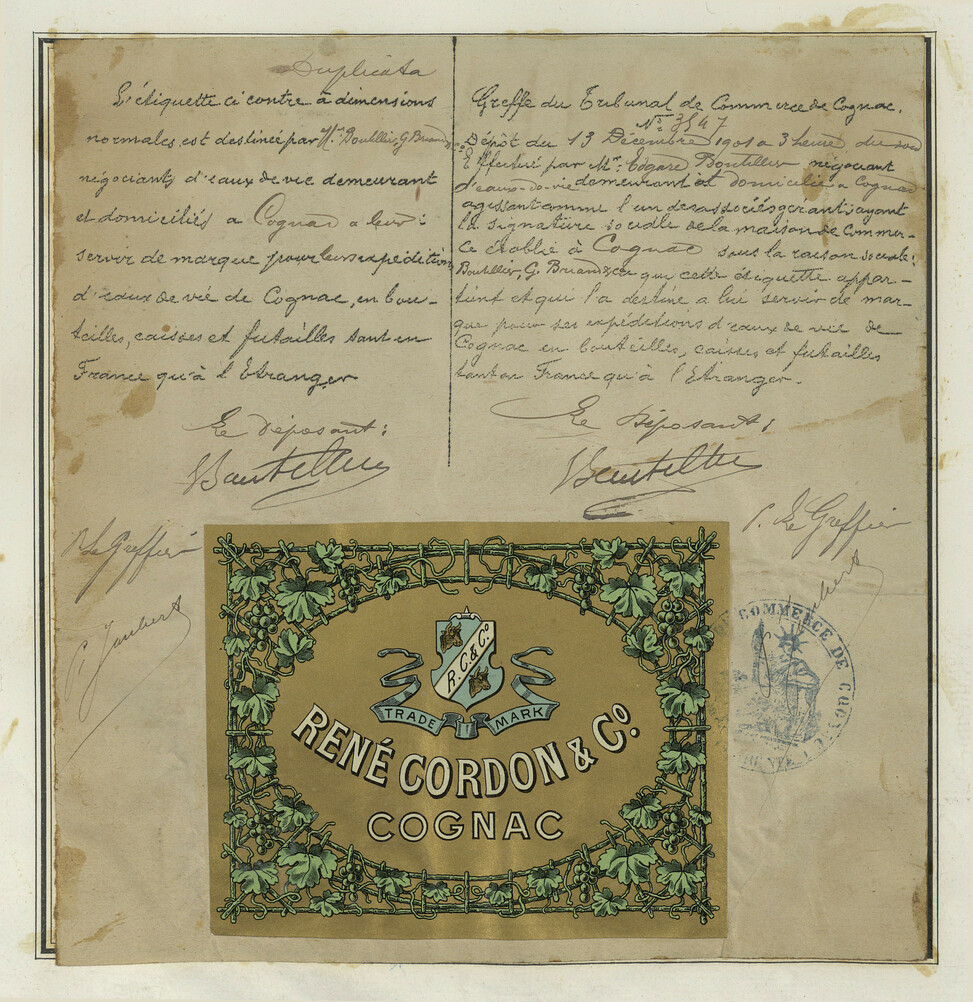 Duplicata
L'étiquette ci contre à dimensions
normales est destinée par Mrs Boutillier, G Briand & Co
négociants d'eaux de vie demeurant
et domiciliés a Cognac a leur
servir de marque pour leurs expéditions
d'eaux de vie de Cognac, en bou-
teilles, caisses et futailles tant en
France qu'à l'Etranger
Le Déposant:
Boutillier
P. Le Greffier
P. Joubert
Greffe du Tribunal de Commerce de Cognac.
No 3547
Dépôt du 13 Décembre 1901 a 3 heures du soir
Effectué par Mr. Edgard Boutillier négociant
d'eaux-de-vie demeurant et domicilié a Cognac
agissant comme l'un des associés gérants ayant
la signature sociale de la maison de Commer-
ce établie à Cognac sous la raison sociale:
Boutillier, G. Briand & Co que cette étiquette appar-
tient et qui l'a destiné a lui servir de mar-
que pour ses expéditions d'eaux de vie de
Cognac en bouteilles, caisses et futailles
tant en France qu'à l'Etranger.
Le Déposant:
Boutillier
P. Le Greffier
Joubert
COMMERCE DE COGNAC
R.C.& Co
TRADE MARK
RENÉ CORDON & Co.
COGNAC